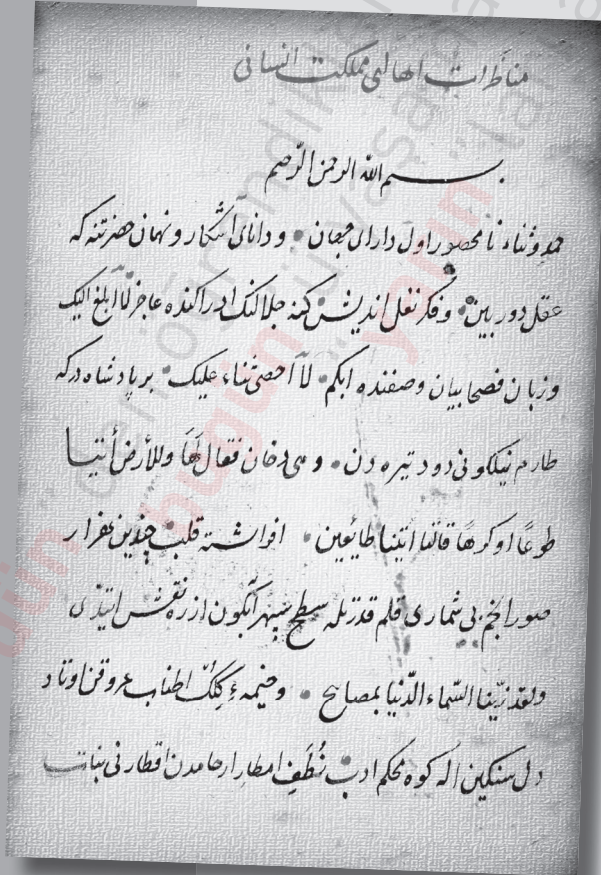 مناظرات اهالئ مملكت انسانی
بسم الله الرحمن الرحیم
حمد و ثناء نا محصور اول دارای جهان و دانای آشكار و نهان حضرتنه كه
عقل دوربین و فكر نغل اندیش كنه جلالنك ادراكنده عاجز لا ابلغ الیك
و زبان فصحا بیان وصفنده ابكم لا احصی ثناء علیك بر پادشاه در كه
طارم نیلكونی دود تیره دن و هی دخان فقال لها وللأرض أتیا
طوعًا او كرهًا قالتا اتینا طایٔعین افراشته قلب
صور انجم بی شماری قلم قدرتله سطح سپهر آبكون ازره نقش ایتدی
ولقد زیّنا السّماء الدّنیا بمصابیح و خیمهٔ اطناب عروقن اوتاد
دل سنكین ایله كوه محكم ادب نُطَفِ امطار ارحامدن اقطارنی نبات